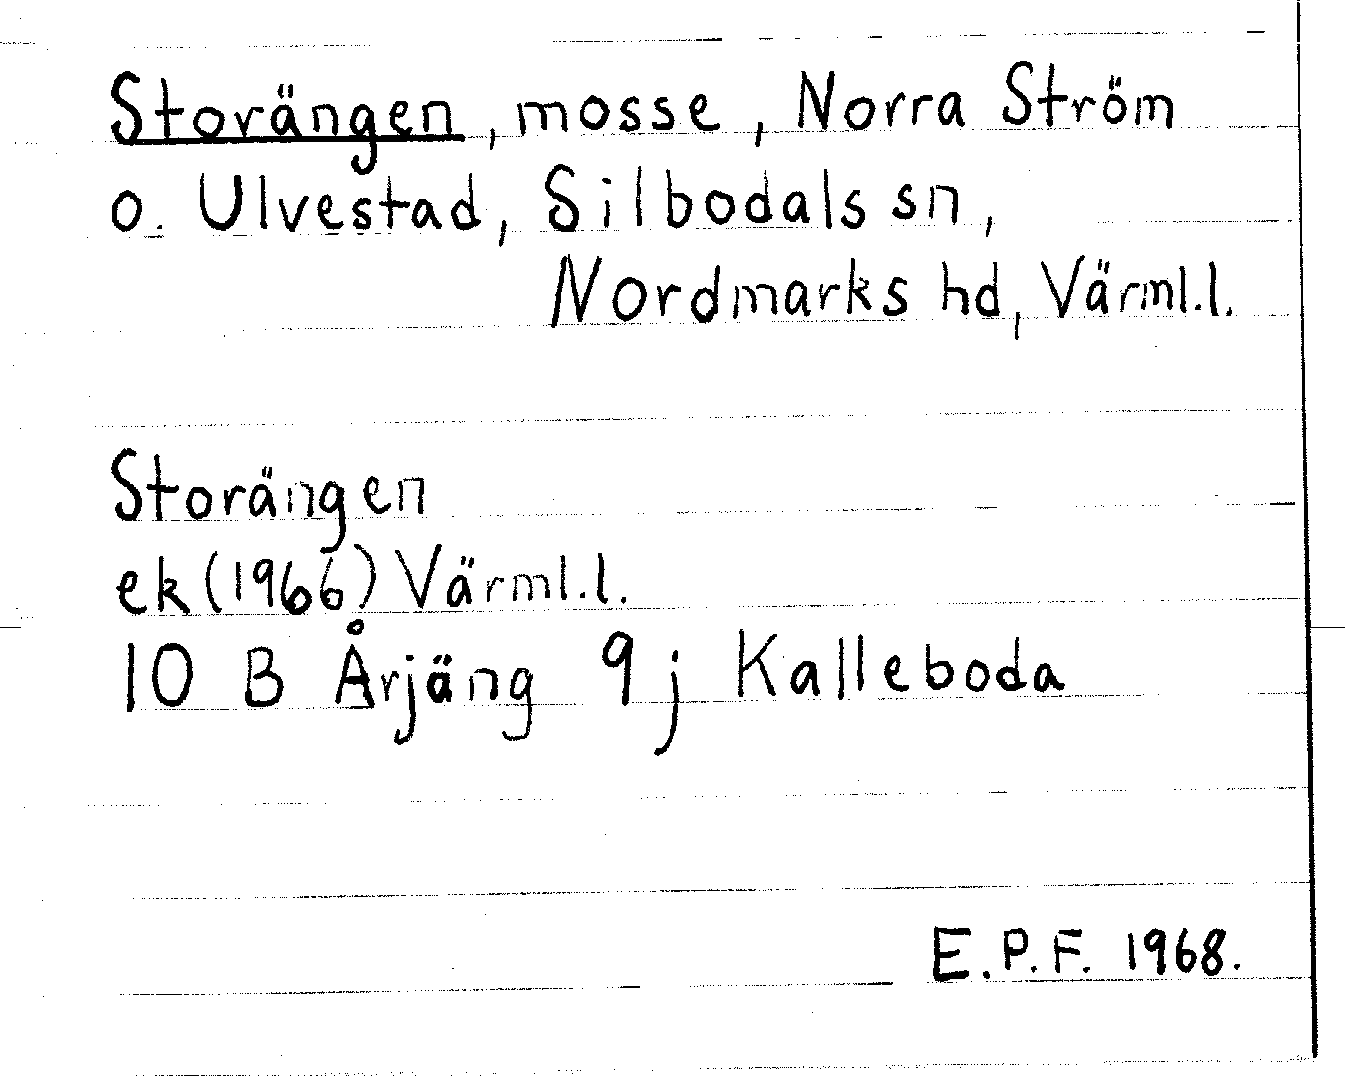 Storängen, mosse, Norra Ström
o. Ulvestad, Silbodals sn,
Nordmarks hd, Värml.l.
Storängen
ek (1966) Värml.l.
10 B Årjäng 9j Kalleboda
E.P.F. 1968.